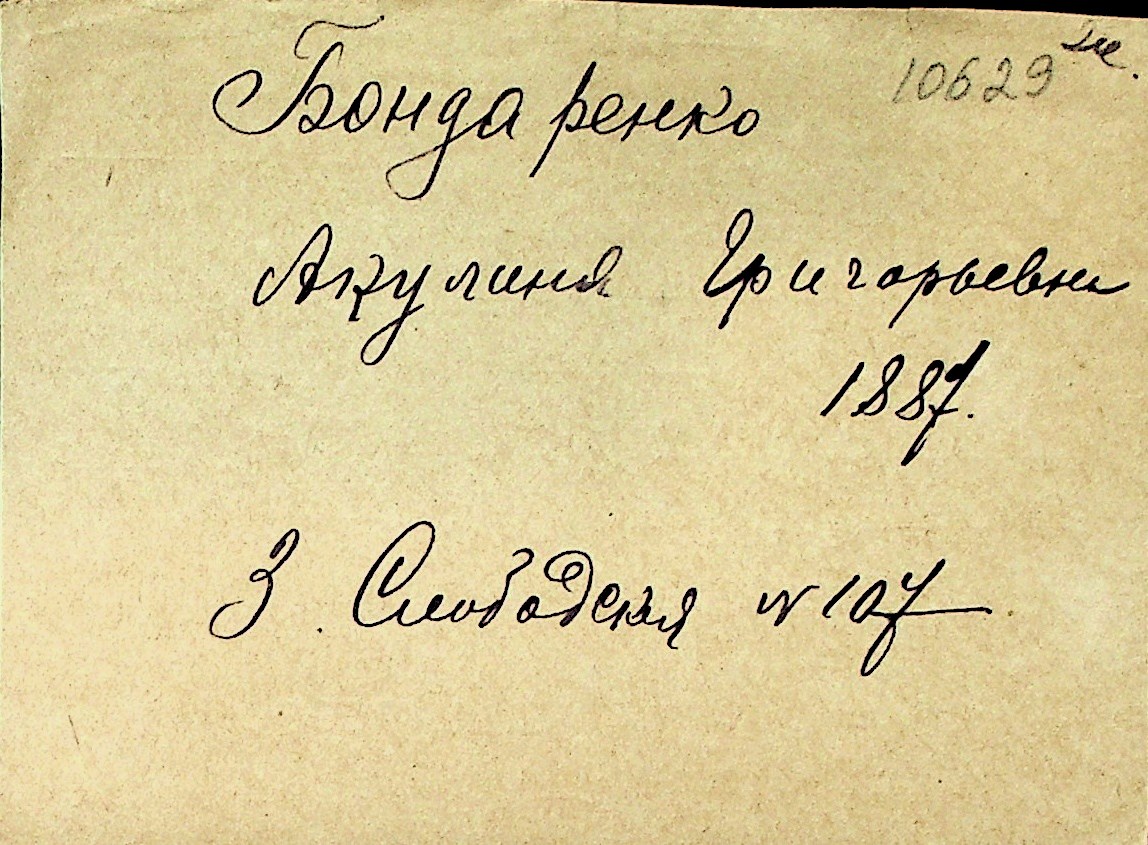 10629
Бондаренко
Акулина Григорьевна
1887.
3. Слободская № 107